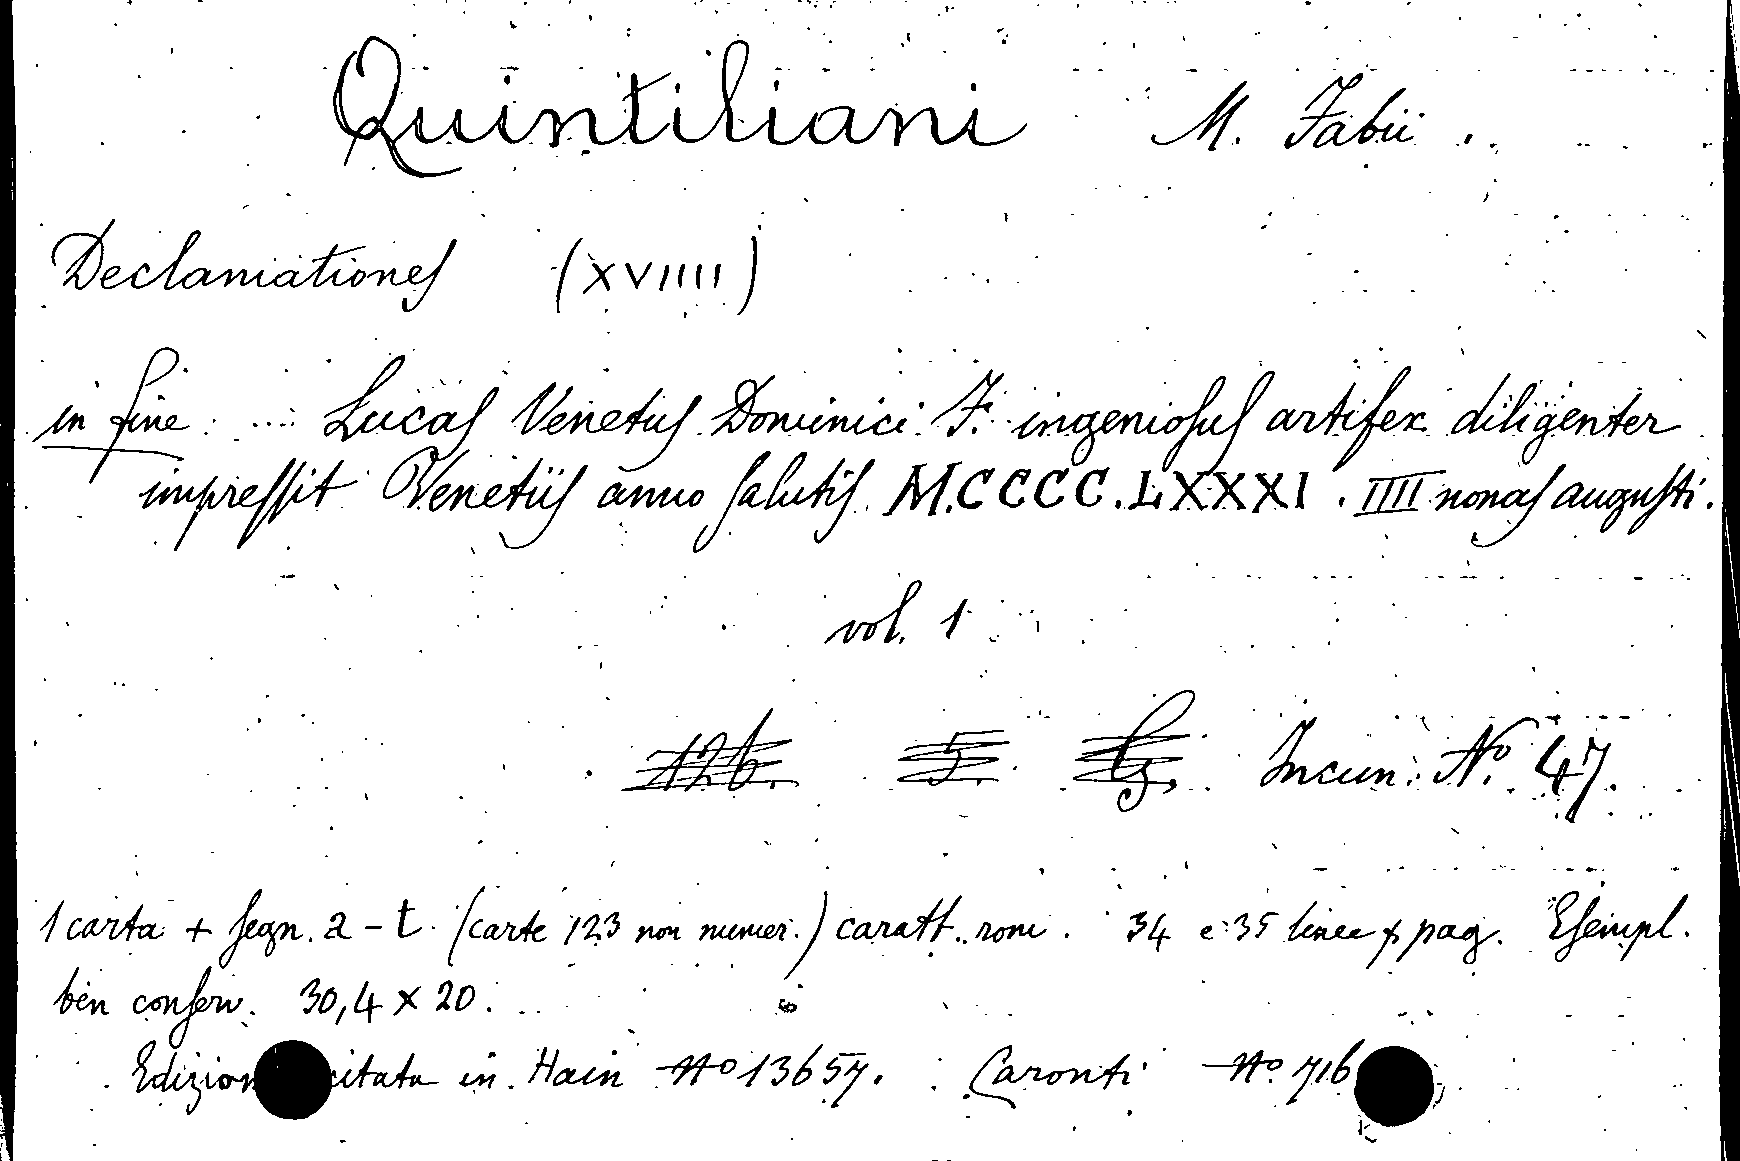 Quintiliani M. Fabii.
Declamationes (XVIIII)
in fine .... Lucas Venetus Dominici F. ingeniosus artifex diligenter
impressit Venetiis anno salutis M.CCCC.LXXXI. IIII nonas augusti.
vol. 1
126. 5. Incun. Nº 47.
1 carta + segn. a - t (carte 123 non numer.) caratt. rom. 34 e 35 linee p pag. Esempl.
ben conserv. 30,4 x 20.
Edizion citata in Hain Nº 13657. Caronti Nº 716